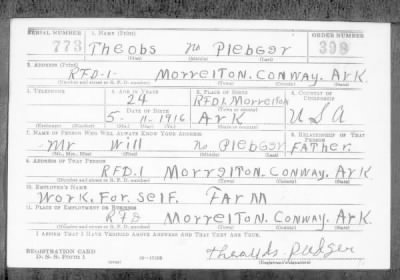 SERIAL NUMBER 1. NAME (Print) ORDER NUMBER
773 Theobs no Plebger 398
(First) (Middle) (Last)
2. ADDRESS (Print)
RFD-1- Morrelton. Conway. Ark.
(Number and street or R. F. D. number) (Town) (County) (State)
3. TELEPHONE 4. AGE IN YEARS 5. PLACE OF BIRTH 6. COUNTRY OF CITIZENSHIP
24 RFD1. Morrelton
DATE OF BIRTH
5- 11-1916 Ark USA
(Exchange) (Number) (Mo.) (Day) (Yr.) (State or country)
7. NAME OF PERSON WHO WILL ALWAYS KNOW YOUR ADDRESS 8. RELATIONSHIP OF THAT PERSON
Mr Will no Plebger Father.
(Mr., Mrs., Miss) (First) (Middle) (Last)
9. ADDRESS OF THAT PERSON
RFD.1 Morrelton. Conway. Ark.
(Number and street or R. F. D. number) (Town) (County) (State)
10. EMPLOYER'S NAME
Work. For self. Farm
11. PLACE OF EMPLOYMENT OR BUSINESS
RFD Morrelton. Conway. Ark.
(Number and street or R. F. D. number) (Town) (County) (State)
I AFFIRM THAT I HAVE VERIFIED ABOVE ANSWERS AND THAT THEY ARE TRUE.
REGISTRATION CARD
D. S. S. FORM 1
(Registrant's signature)